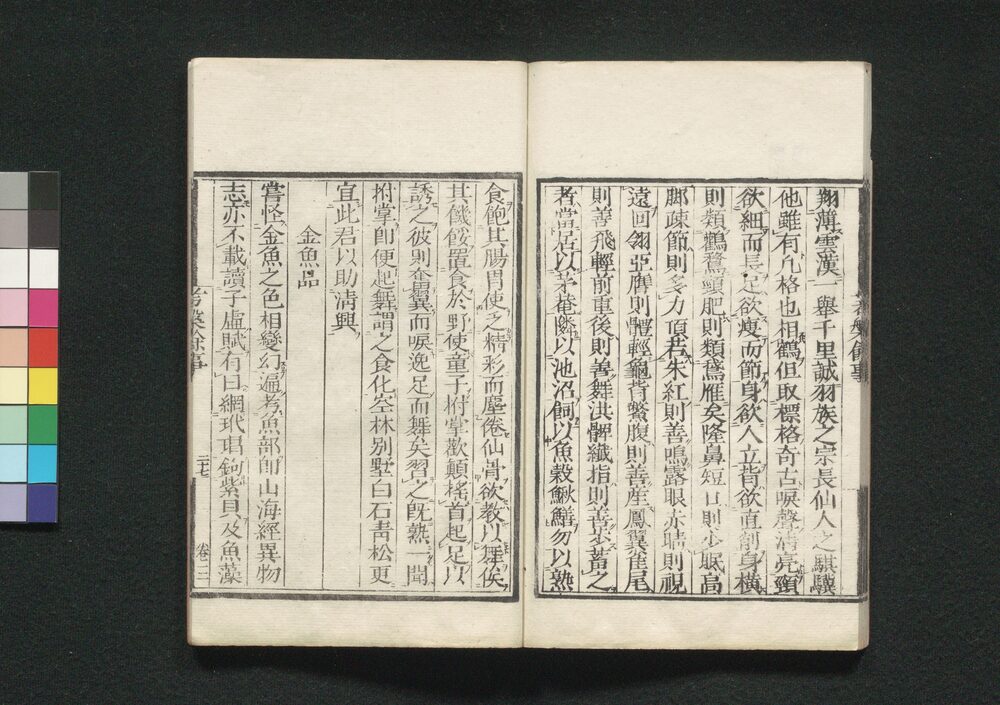 翔薄雲漢一舉千里誠羽族之宗長仙人之騏驥
他雖有凢格也相鶴但取標格奇古唳聲清亮頸
欲細而長足欲瘦而節身欲人立背欲直削身橫
則類鸛鶩頸肥則類鵞雁矣隆鼻短口則少眠高
脚疎節則多力頂若朱紅則善鳴露眼赤睛則視
遠回翎亞膺則體輕龜背鱉腹則善産鳳翼雀尾
則善飛輕前重後則善舞洪髀纖指則善步蓄之
者當居以茅菴隣以池沼飼以魚穀鰍鱔勿以熟
食飽其腸胃使乏精彩而塵倦仙骨欲教以舞俟
其饑餒置食於野使童子拊掌歡顛搖首起足以
誘之彼則奮翼而唳逸足而舞矣習之既熟一聞
拊掌即便起舞謂之食化空林別墅白石靑松更
宜此君以助清興
金魚品
嘗怪金魚之色相變幻遍考魚部即山海經異物
志亦不載讀子虛賦有曰網玳瑁鉤紫貝及魚藻
考槃餘事
二七
卷三
考槃餘事